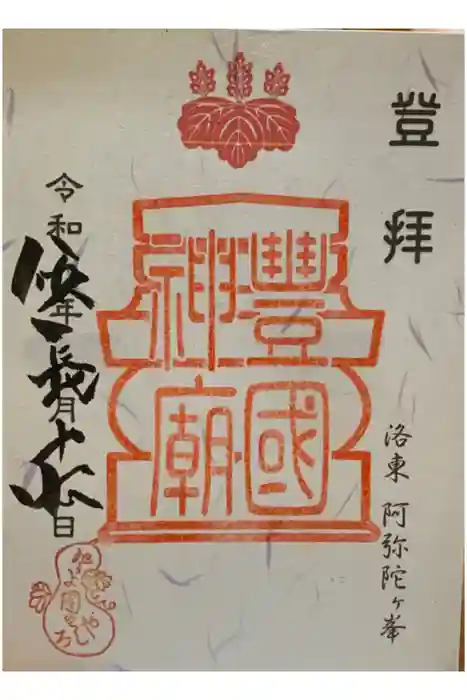 登拝
豐國
神廟
洛東 阿弥陀ヶ峯
令和年長月十日